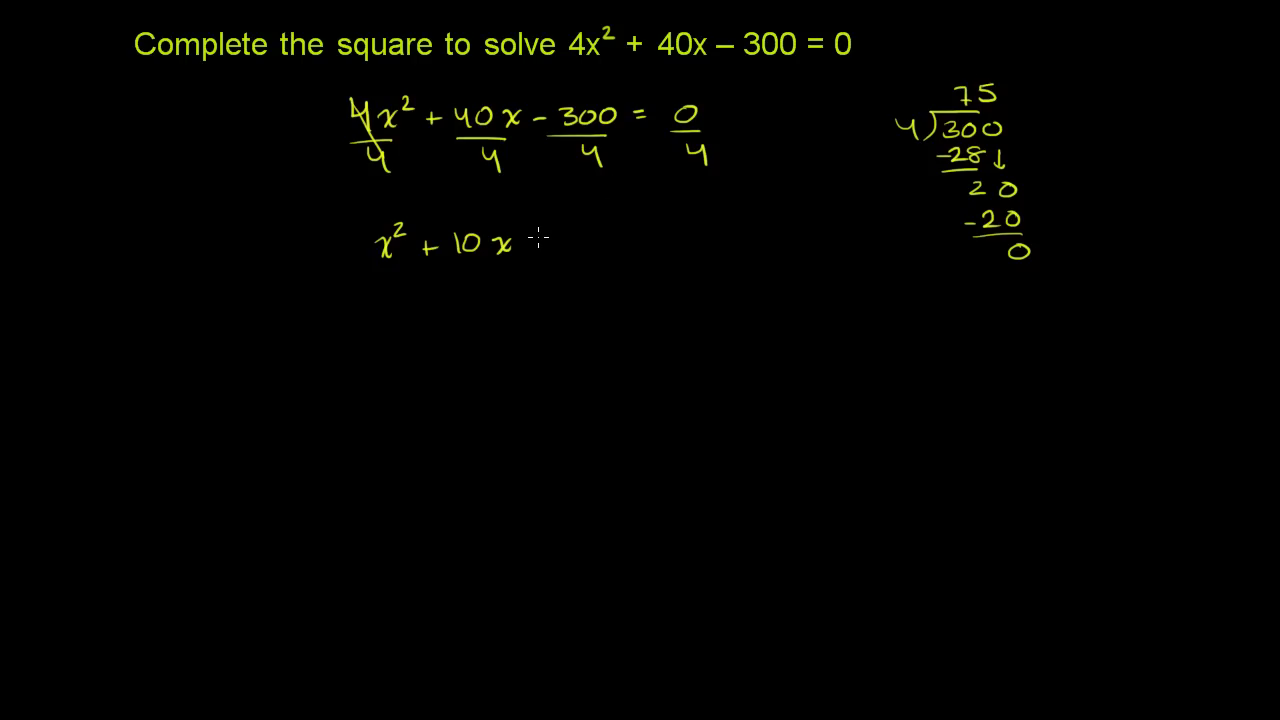 Complete the square to solve 4x² + 40x – 300 = 0
4x²/4 + 40x/4 - 300/4 = 0/4
x² + 10x
75
4)300
-28↓
20
-20
0